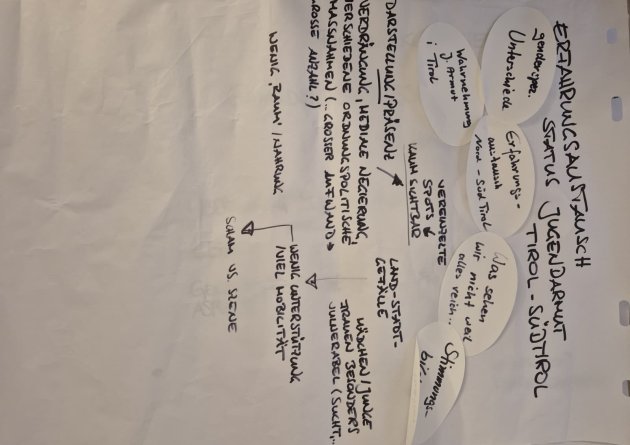 ERFAHRUNGSAUSTAUSCH
STATUS JUGENDARMUT
TIROL - SÜDTIROL
genderspez.
Unterschiede
Erfahrungs-
austausch
Nord - Süd Tirol
Was sehen
wir nicht weil
alles reich..
Stimmungs-
Wahrnehmung
J. Armut
i Tirol
DARSTELLUNG/PRÄSENZ
VEREINZELTE
SPOTS &
KAUM SICHTBAR
VERDRÄNGUNG, MEDIALE NEGIERUNG,
VERSCHIEDENE ORDNUNGSPOLITISCHE
MASSNAHMEN (.. GROSSER AUFWAND →
GROSSE ANZAHL?)
LAND-STADT-
GEFÄLLE
MÄDCHEN/JUNGE
FRAUEN BESONDERS
VULNERABEL (SUCHT,..
WENIG „RAUM“/NAHRUNG
WENIG UNTERSTÜTZUNG
/VIEL MOBILITÄT
SCHAM VS. SZENE